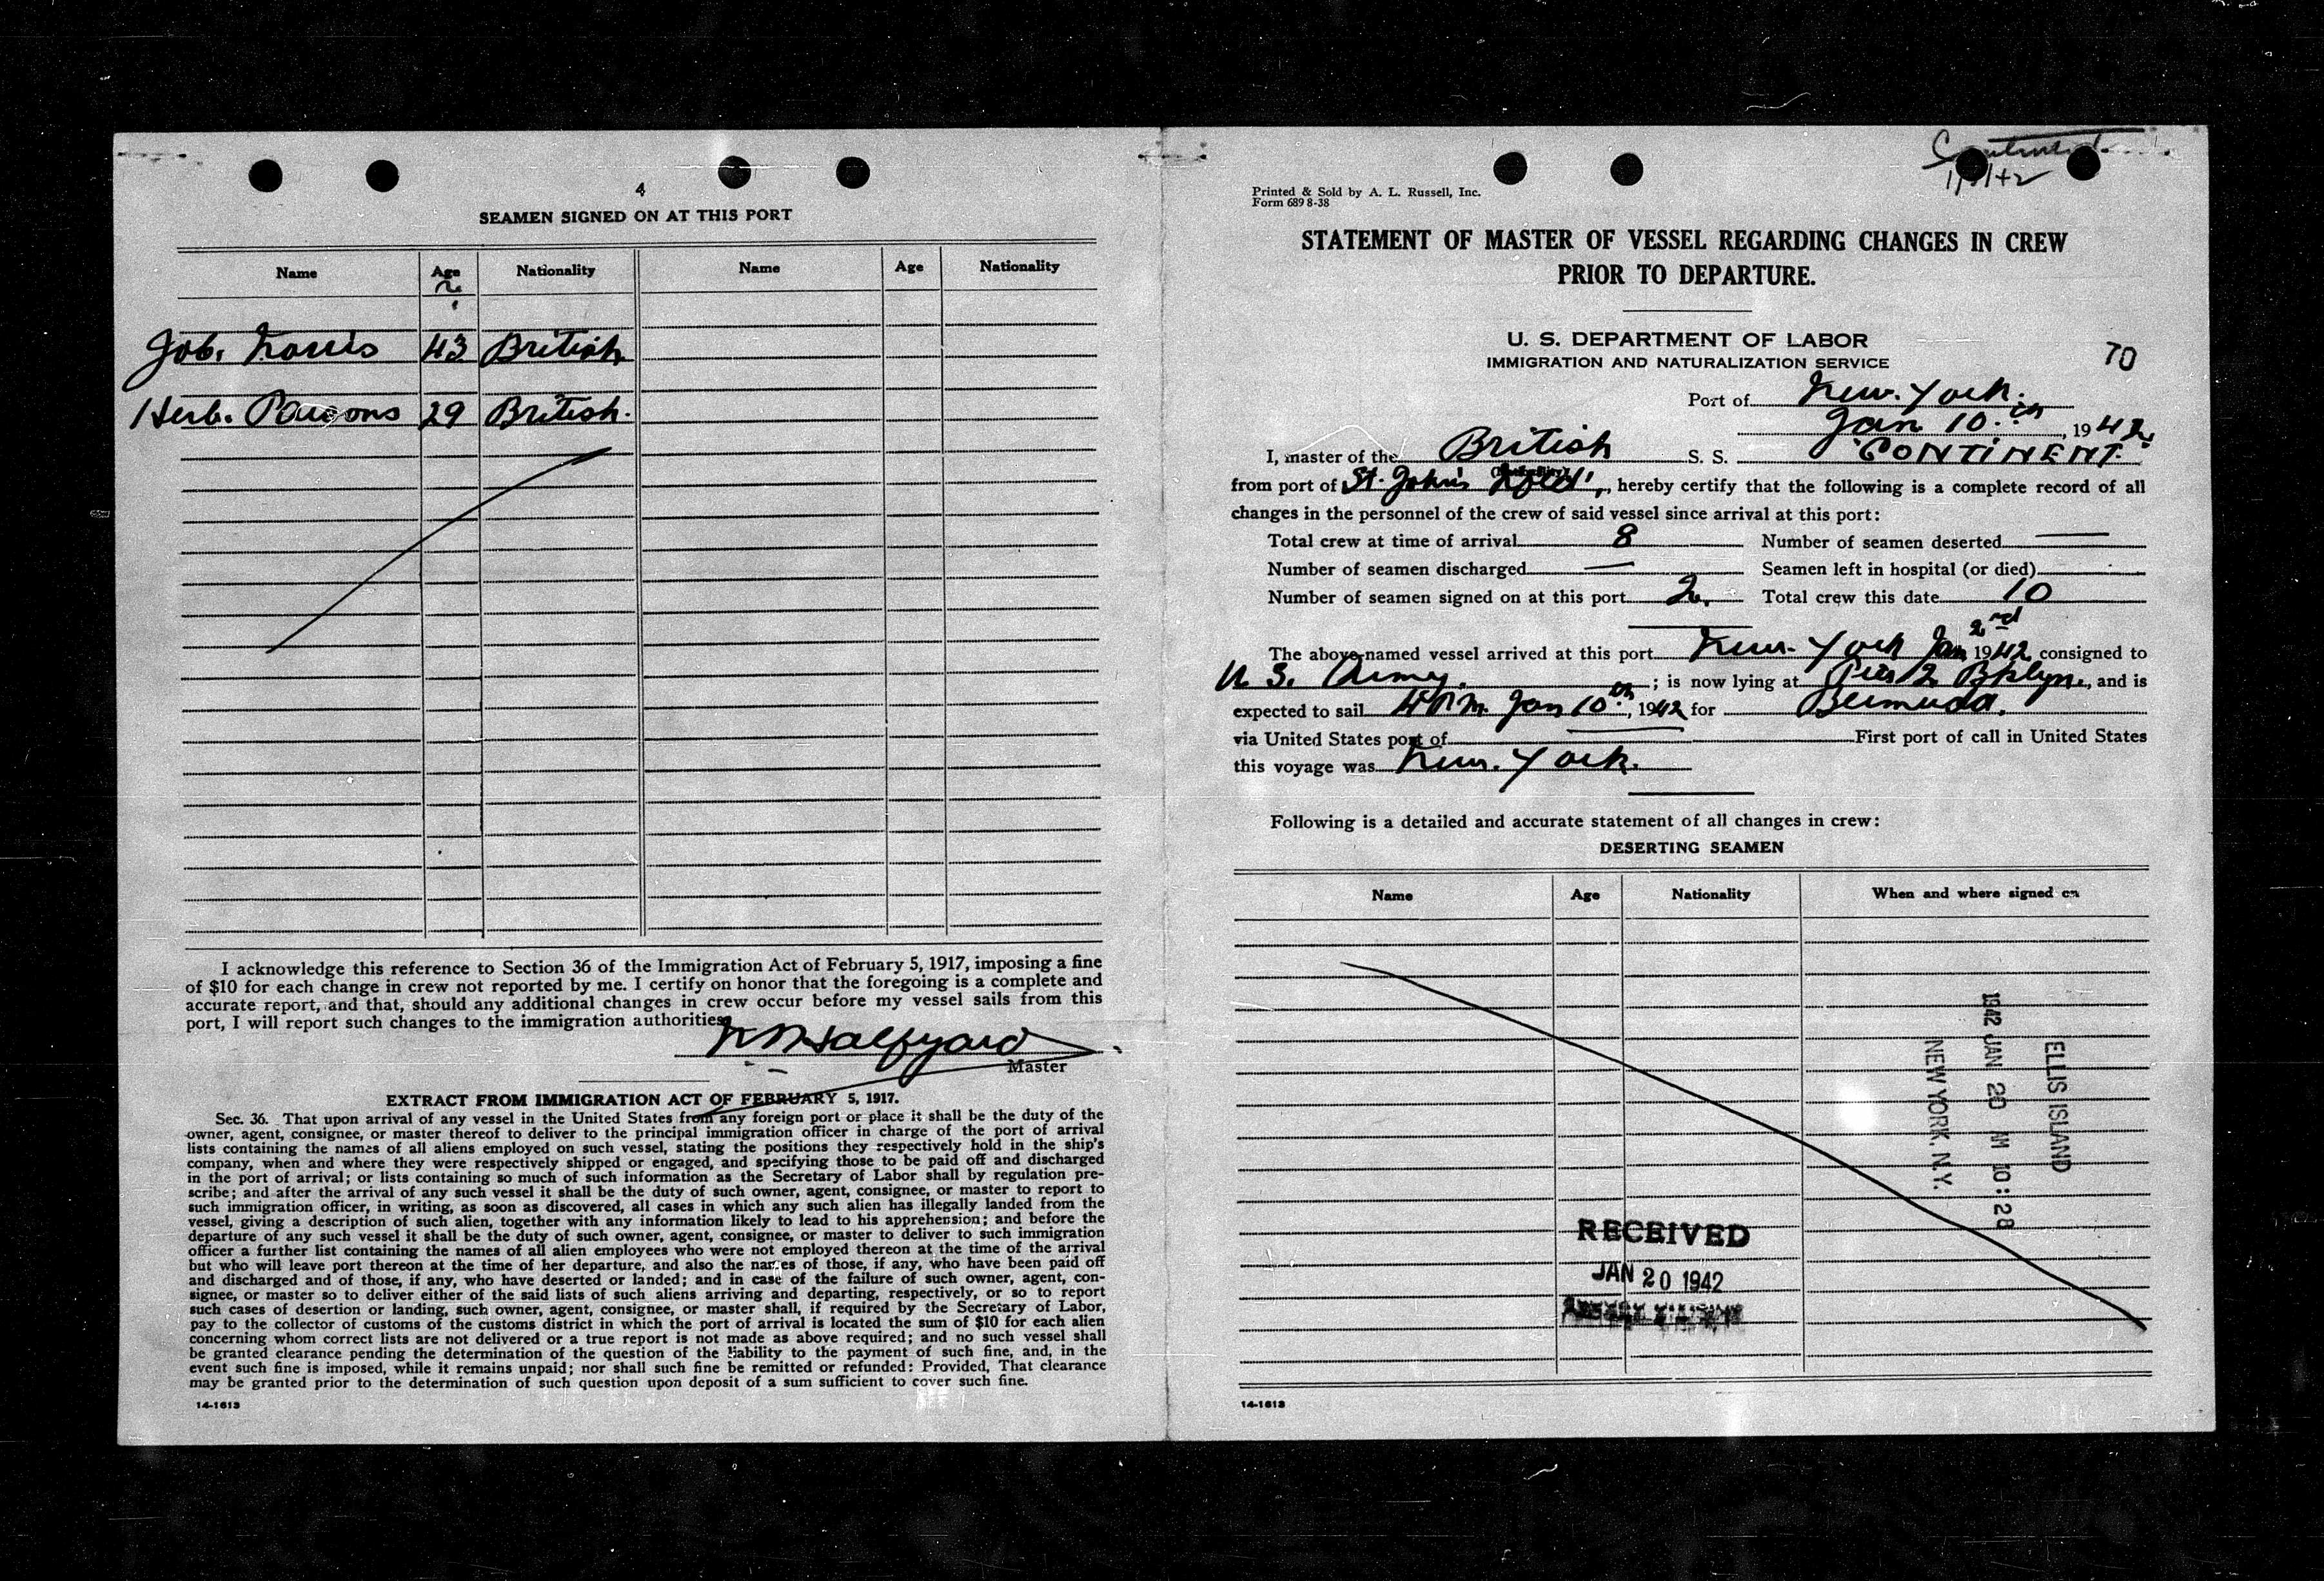 4
SEAMEN SIGNED ON AT THIS PORT
Name Age Nationality Name Age Nationality
Job. 43 British
Herb. Parsons 29 British.
I acknowledge this reference to Section 36 of the Immigration Act of February 5, 1917, imposing a fine
of $10 for each change in crew not reported by me. I certify on honor that the foregoing is a complete and
accurate report, and that, should any additional changes in crew occur before my vessel sails from this
port, I will report such changes to the immigration authorities.
Halfyard
Master
EXTRACT FROM IMMIGRATION ACT OF FEBRUARY 5, 1917.
Sec. 36. That upon arrival of any vessel in the United States from any foreign port or place it shall be the duty of the
owner, agent, consignee, or master thereof to deliver to the principal immigration officer in charge of the port of arrival
lists containing the names of all aliens employed on such vessel, stating the positions they respectively hold in the ship's
company, when and where they were respectively shipped or engaged, and specifying those to be paid off and discharged
in the port of arrival; or lists containing so much of such information as the Secretary of Labor shall by regulation pre-
scribe; and after the arrival of any such vessel it shall be the duty of such owner, agent, consignee, or master to report to
such immigration officer, in writing, as soon as discovered, all cases in which any such alien has illegally landed from the
vessel, giving a description of such alien, together with any information likely to lead to his apprehension; and before the
departure of any such vessel it shall be the duty of such owner, agent, consignee, or master to deliver to such immigration
officer a further list containing the names of all alien employees who were not employed thereon at the time of the arrival
but who will leave port thereon at the time of her departure, and also the names of those, if any, who have been paid off
and discharged and of those, if any, who have deserted or landed; and in case of the failure of such owner, agent, con-
signee, or master so to deliver either of the said lists of such aliens arriving and departing, respectively, or so to report
such cases of desertion or landing, such owner, agent, consignee, or master shall, if required by the Secretary of Labor,
pay to the collector of customs of the customs district in which the port of arrival is located the sum of $10 for each alien
concerning whom correct lists are not delivered or a true report is not made as above required; and no such vessel shall
be granted clearance pending the determination of the question of the liability to the payment of such fine, and, in the
event such fine is imposed, while it remains unpaid; nor shall such fine be remitted or refunded: Provided, That clearance
may be granted prior to the determination of such question upon deposit of a sum sufficient to cover such fine.
14-1613
Printed & Sold by A. L. Russell, Inc.
Form 689 8-38
STATEMENT OF MASTER OF VESSEL REGARDING CHANGES IN CREW
PRIOR TO DEPARTURE.
U. S. DEPARTMENT OF LABOR
IMMIGRATION AND NATURALIZATION SERVICE
70
Port of New. York.
Jan 10.th, 1942.
I, master of the British S. S. "CONTINENT."
from port of St. John's Nfld, hereby certify that the following is a complete record of all
changes in the personnel of the crew of said vessel since arrival at this port:
Total crew at time of arrival 8 Number of seamen deserted —
Number of seamen discharged — Seamen left in hospital (or died)
Number of seamen signed on at this port 2. Total crew this date 10
The above-named vessel arrived at this port New. York Jan 2nd 1942 consigned to
U. S. Army. ; is now lying at Pier 2 Bklyn., and is
expected to sail 4 P.M. Jan 10.th, 1942 for Bermuda.
via United States port of First port of call in United States
this voyage was New. York.
Following is a detailed and accurate statement of all changes in crew:
DESERTING SEAMEN
Name Age Nationality When and where signed on
ELLIS ISLAND
1942 JAN 20 AM 10:28
NEW YORK, N.Y.
RECEIVED
JAN 20 1942
14-1613